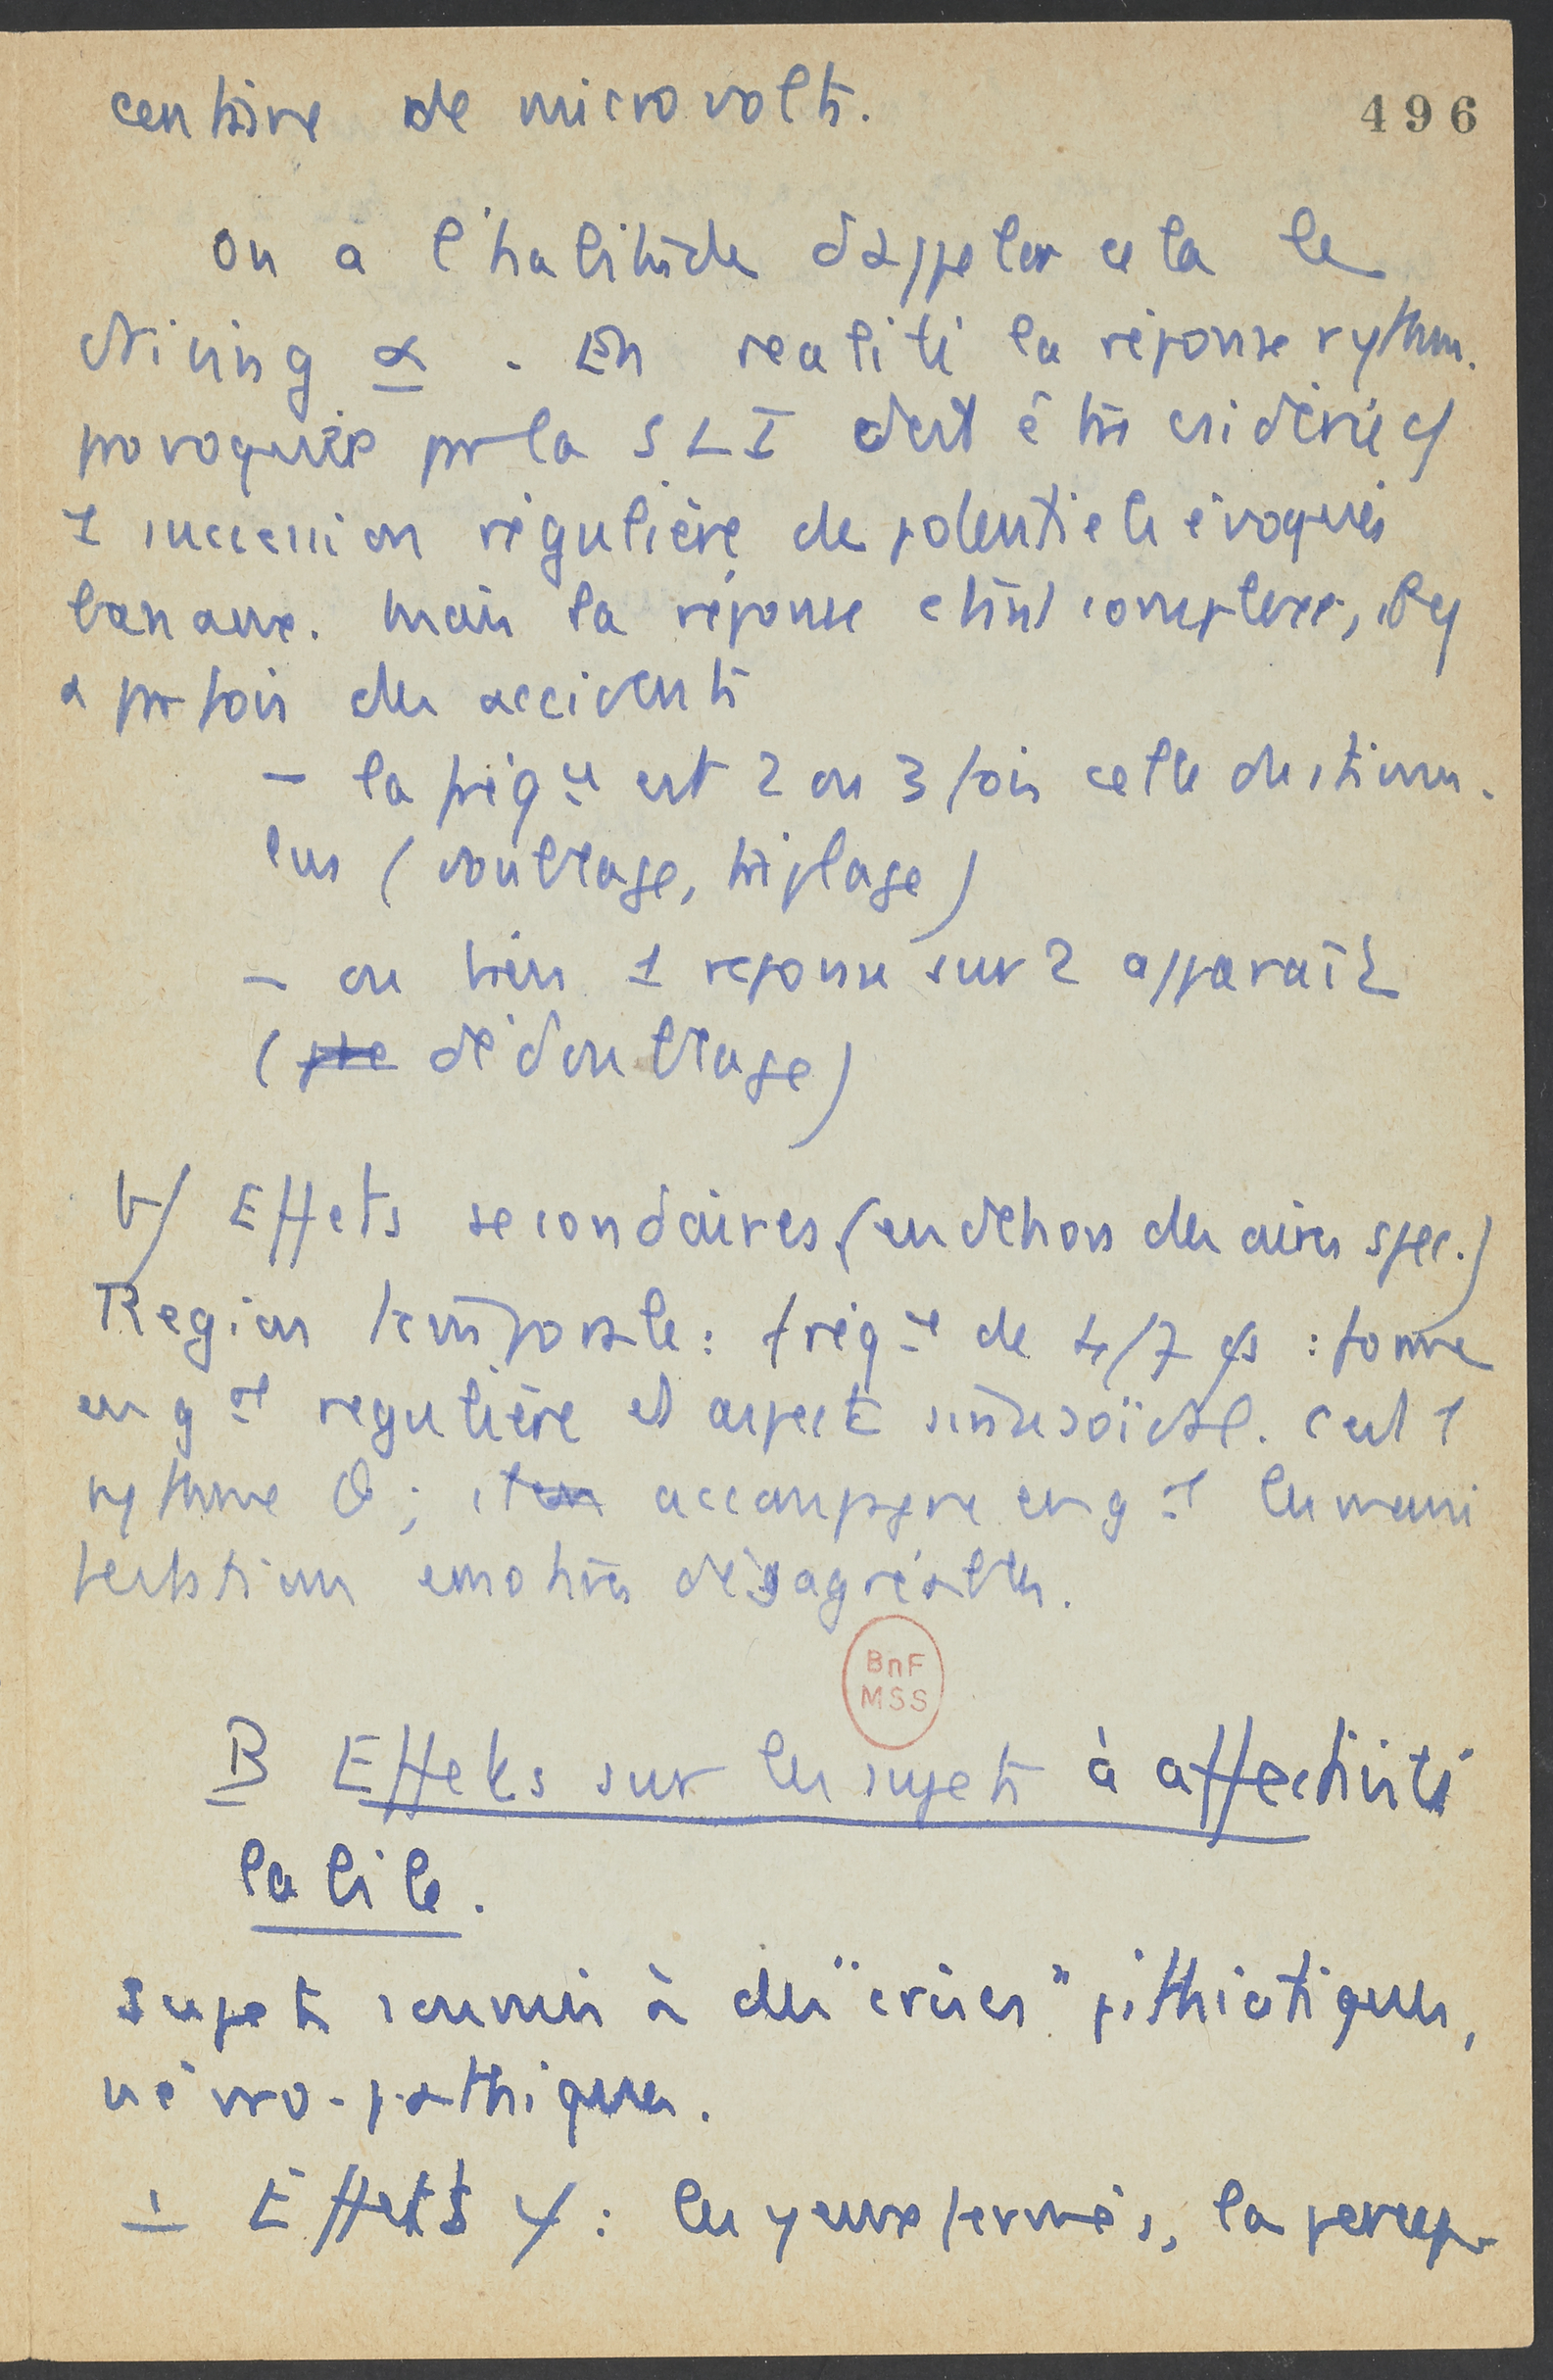 centaine de microvolts.
496
On a l'habitude d'appeler cela le
driving α. En realité la réponse rythm.
provoquée par la SLI doit être considérée c/
1 succession régulière de potentiels évoqués
banaux. Mais la réponse étant complexe, il y
a parfois des accidents
- la fréq ce est 2 ou 3 fois celle du stimu-
lus (doublage, triplage)
- ou bien 1 reponse sur 2 apparaît
(dédoublage)
b/ Effets secondaires (en dehors des aires spec.)
Region temporale : fréq ce de 4/7 cs : forme
en g al regulière et aspect sinusoïdal. C'est 1
rythme θ ; accompagne en g al les mani
festations émotives désagréables.
BnF
MSS
B Effets sur les sujets à affectivité
labile.
Sujets soumis à des "crises" pithiatiques,
névro-pathiques.
1 Effets ψ : les yeux fermés, la percep-